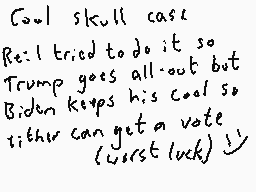 Cool skull case
Re:I tried to do it so
Trump goes all-out but
Biden keeps his cool so
either can get a vote
(worst luck) :)